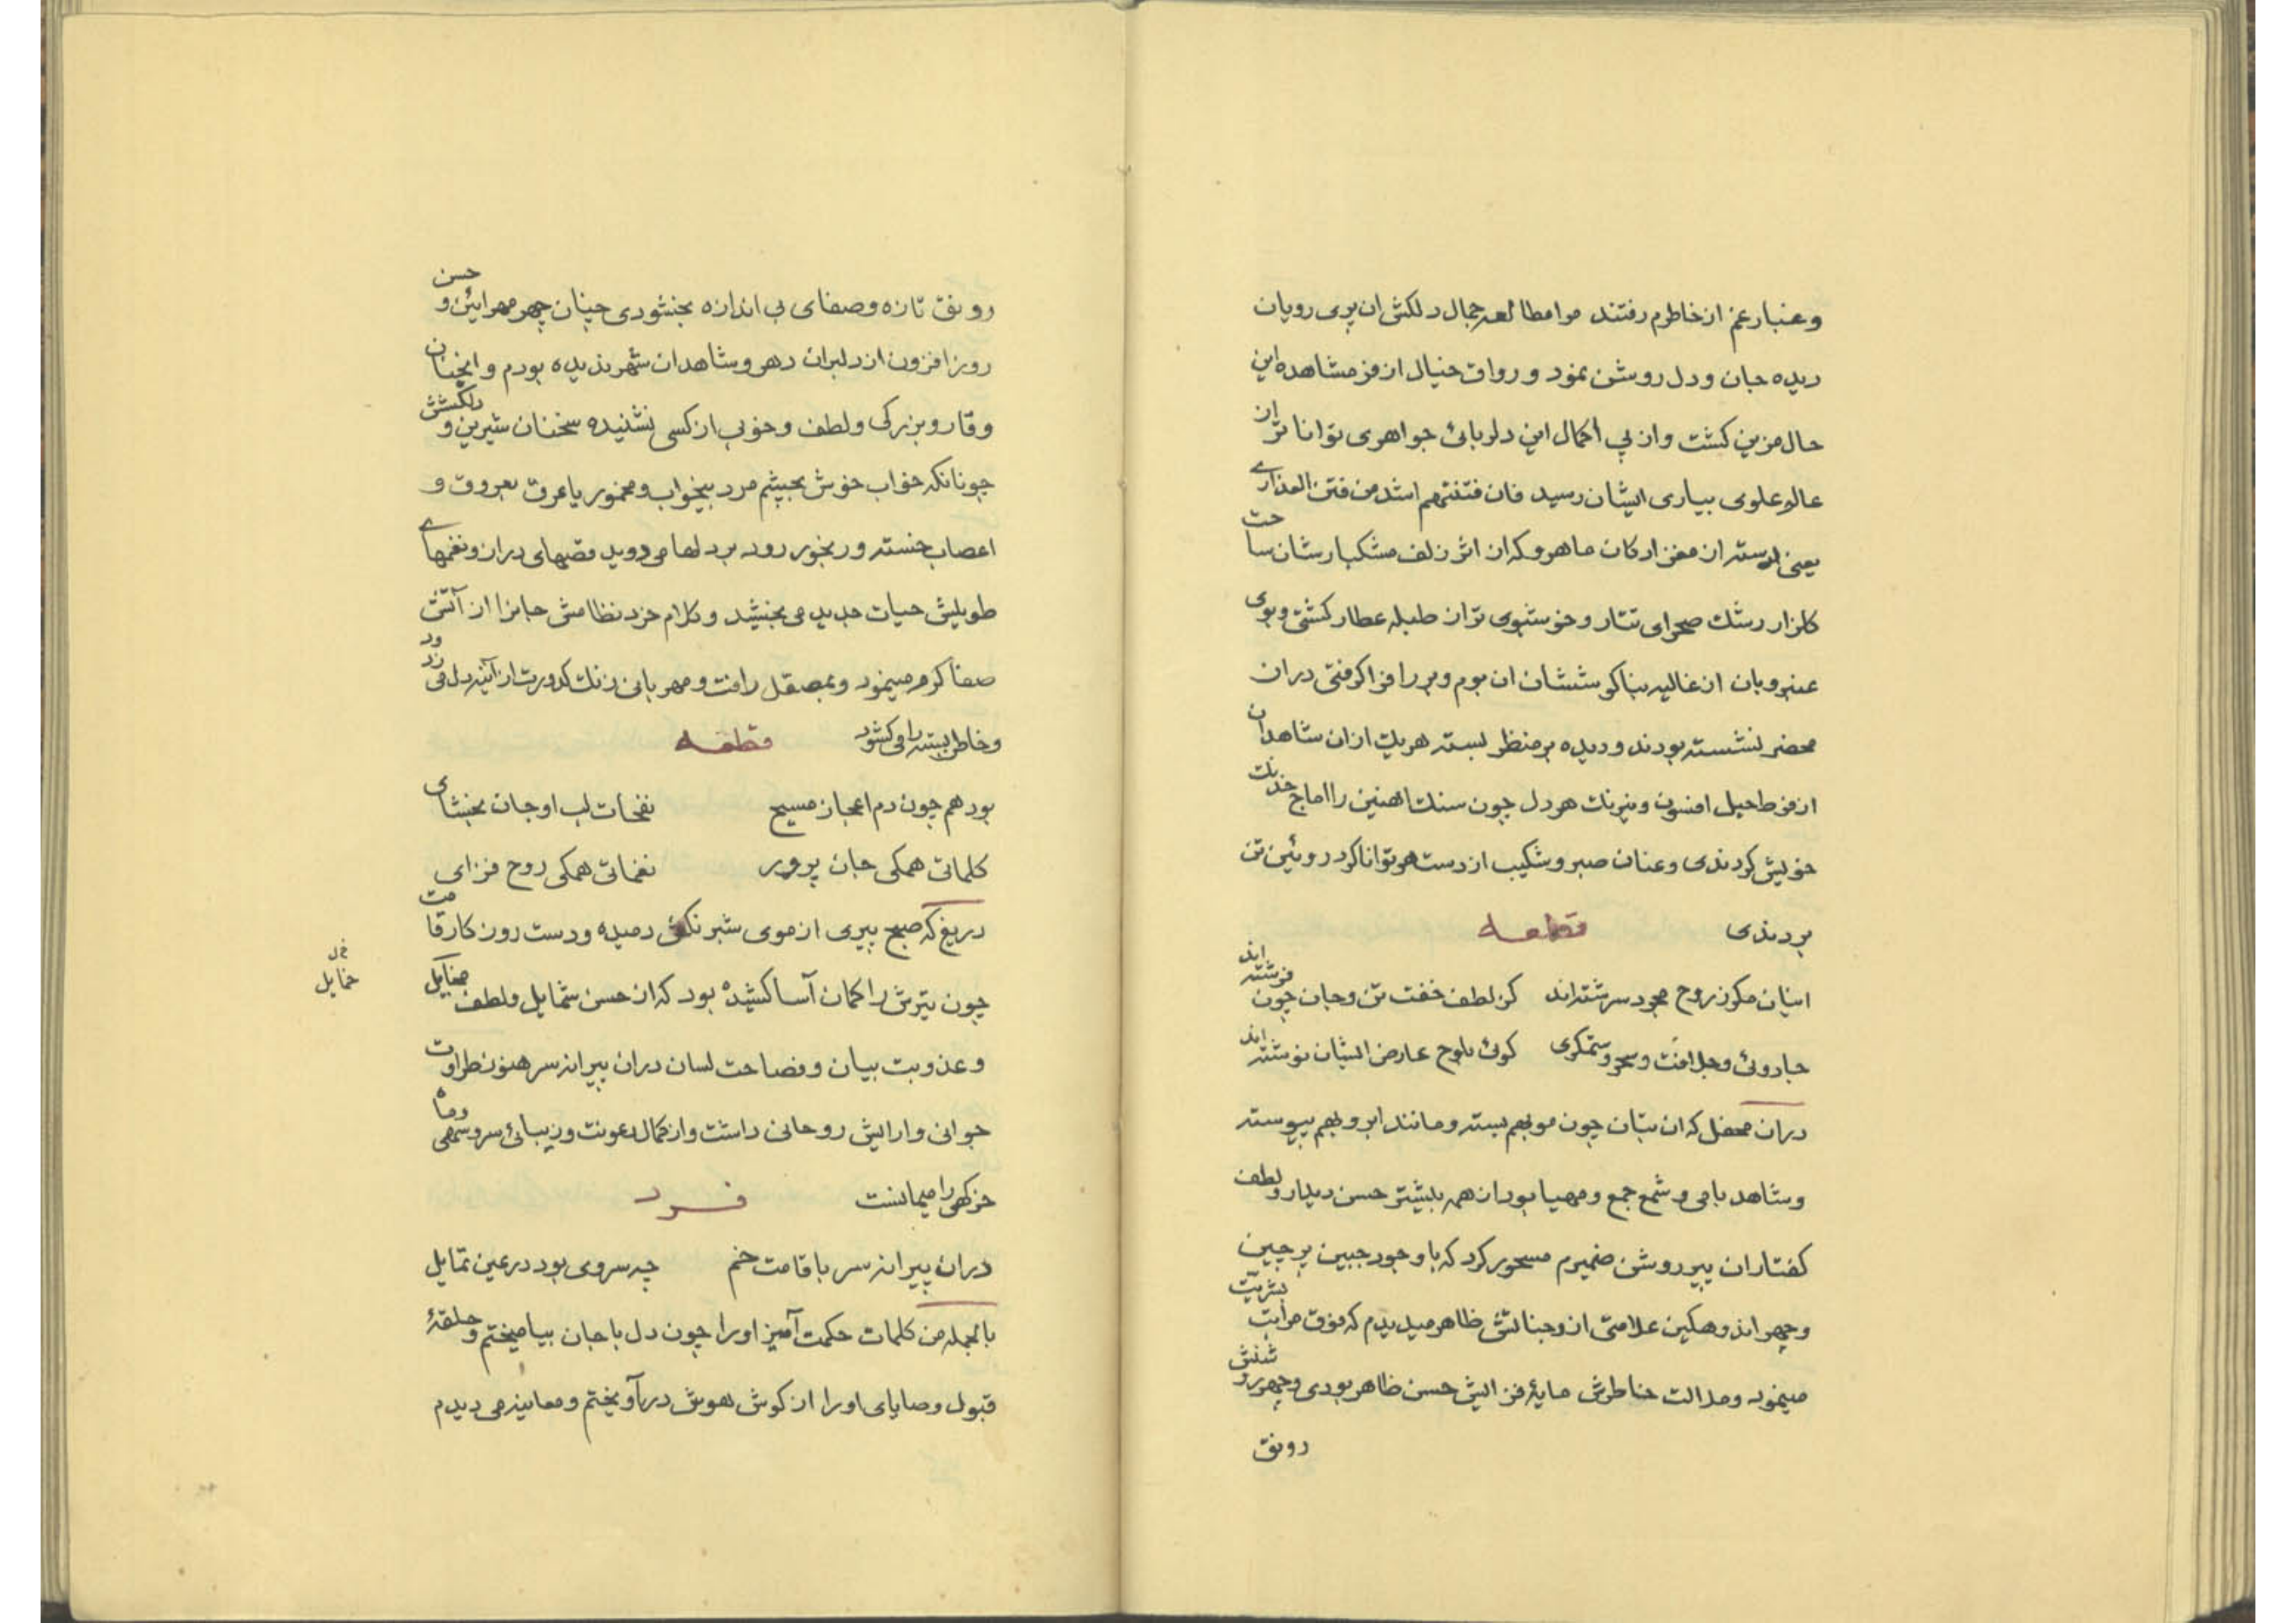 وغبار غم از خاطرم رفتند مرا مطالعه جمال دلکش ان پری رویان
دیده جان ودل روشن نمود ورواق خیال از فر مشاهده این
حال مزین کشت واز پی اکمال این دلربائی جواهری توانا تر از
عالم علوی بیاری ایشان رسید فان فتنتهم اشد من فتن العذاری
یعنی از دسته از مغزادکان ماهرو که از اثر زلف مشکبارشان ساحت
کلزار رشك صحرای تتار وخوشبوی تر از طبله عطار کشتی وبوی
عنبروبان از غالیه بناکوششان ان بوم وبر را فرا کرفتی دران
محضر نشسته بودند ودیده بر منظر بسته هریك ازان شاهدان
از فرط حیل افسون ونیرنك هر دل چون سنك اهنین را اماج خدنك
خویش کردندی وعنان صبر وشکیب از دست هر توانا کرد روئین تن
بردندی قطعه
اینان مکو زروح مجرد سرشته اند کز لطف خفت تن وجان چون فرشته اند
جادوئی وجل افت وسحر وستمکری کوئی بلوح عارض ایشان نوشته اند
دران محفل که ان بتان چون مو بهم بسته ومانند ابرو بهم پیوسته
وشاهد بامی وشمع جمع ومهیا بود از همه بیشتر حسن دیدار ولطف
کفتار ان پیر روشن ضمیرم مسحور کرد که با وجود جبین پرچین
وچهر اندوهکین علامتی از وجناتش ظاهر میدیدم که فوق مراتب بشریت
مینمود ومدالت خاطرش مایهٔ فزایش حسن ظاهر بودی وچهر روشنش
رونق
رونق تازه وصفای بی اندازه بخشودی چنان چهر مهرائین وحسن
روز افزون از دلبران دهر وشاهدان شهر ندیده بودم وانچنان
وقار وبزرکی ولطف وخوبی از کسی نشنیده سخنان شیرین ودلکشش
چونانکه خواب خوش بچشم مرد بیخواب ومخمور یا عرق بعروق و
اعصاب خسته ورنجور رود بر دلها می دوید قصهای دراز ونغمهای
طویلش حیات جدید می بخشید وکلام خرد نظامش جانرا از آتش
صفا کرم مینمود وبمصقل رافت ومهربانی زنك کدورت از آئینه دل می زدود
وخاطر بسته را می کشود قطعه
بود هم چون دم اعجاز مسیح نفخات لب او جان بخشای
کلماتی همکی جان پرور نغماتی همکی روح فزای
دریغ که صبح پیری از موی شبرنکش دمیده ودست روزکار قامت
چون تیرش را کمان آسا کشیده بود که از حسن شمایل ولطف مخایل
خمایل خ ل
وعذوبت بیان وفصاحت لسان دران پیرانه سر هنوز طراوت
جوانی وارایش روحانی داشت واز کمال رعونت وزیبائی سرو سهی وماه
خرکهی را میمانست فرد
دران پیرانه سر با قامت خم چه سروی بود در عین تمایل
بالجمله من کلمات حکمت آمیز اورا چون دل با جان بیامیختم وحلقهٔ
قبول وصایای اورا از کوش هوش درآویختم ومعاینه می دیدم